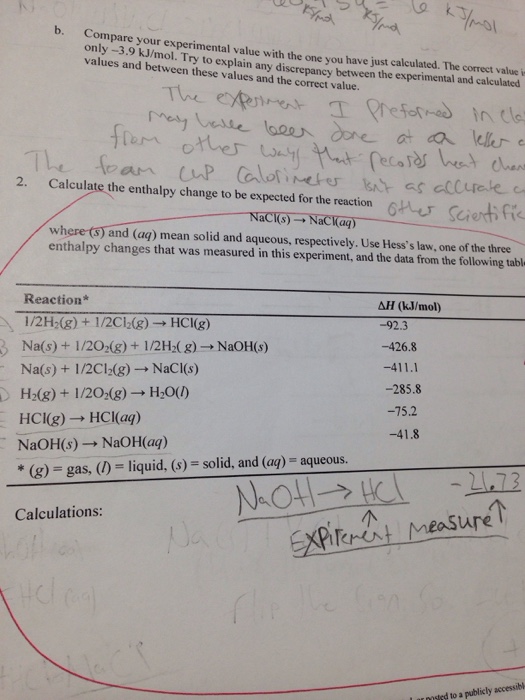 kJ/mol kJ/mol 6 kJ/mol
b. Compare your experimental value with the one you have just calculated. The correct value i
only −3.9 kJ/mol. Try to explain any discrepancy between the experimental and calculated
values and between these values and the correct value.
The experiment I Preformed in cla
may have been done at a
from other ways that records heat
The foam cup Calorimeter isn't as accurate
other scientific
2. Calculate the enthalpy change to be expected for the reaction
NaCl(s) → NaCl(aq)
where (s) and (aq) mean solid and aqueous, respectively. Use Hess's law, one of the three
enthalpy changes that was measured in this experiment, and the data from the following tabl
Reaction* ΔH (kJ/mol)
1/2H₂(g) + 1/2Cl₂(g) → HCl(g) −92.3
Na(s) + 1/2O₂(g) + 1/2H₂(g) → NaOH(s) −426.8
Na(s) + 1/2Cl₂(g) → NaCl(s) −411.1
H₂(g) + 1/2O₂(g) → H₂O(l) −285.8
HCl(g) → HCl(aq) −75.2
NaOH(s) → NaOH(aq) −41.8
* (g) = gas, (l) = liquid, (s) = solid, and (aq) = aqueous.
NaOH → HCl -21.73
Calculations:
↑ ↑
Expirement measure
posted to a publicly accessibl